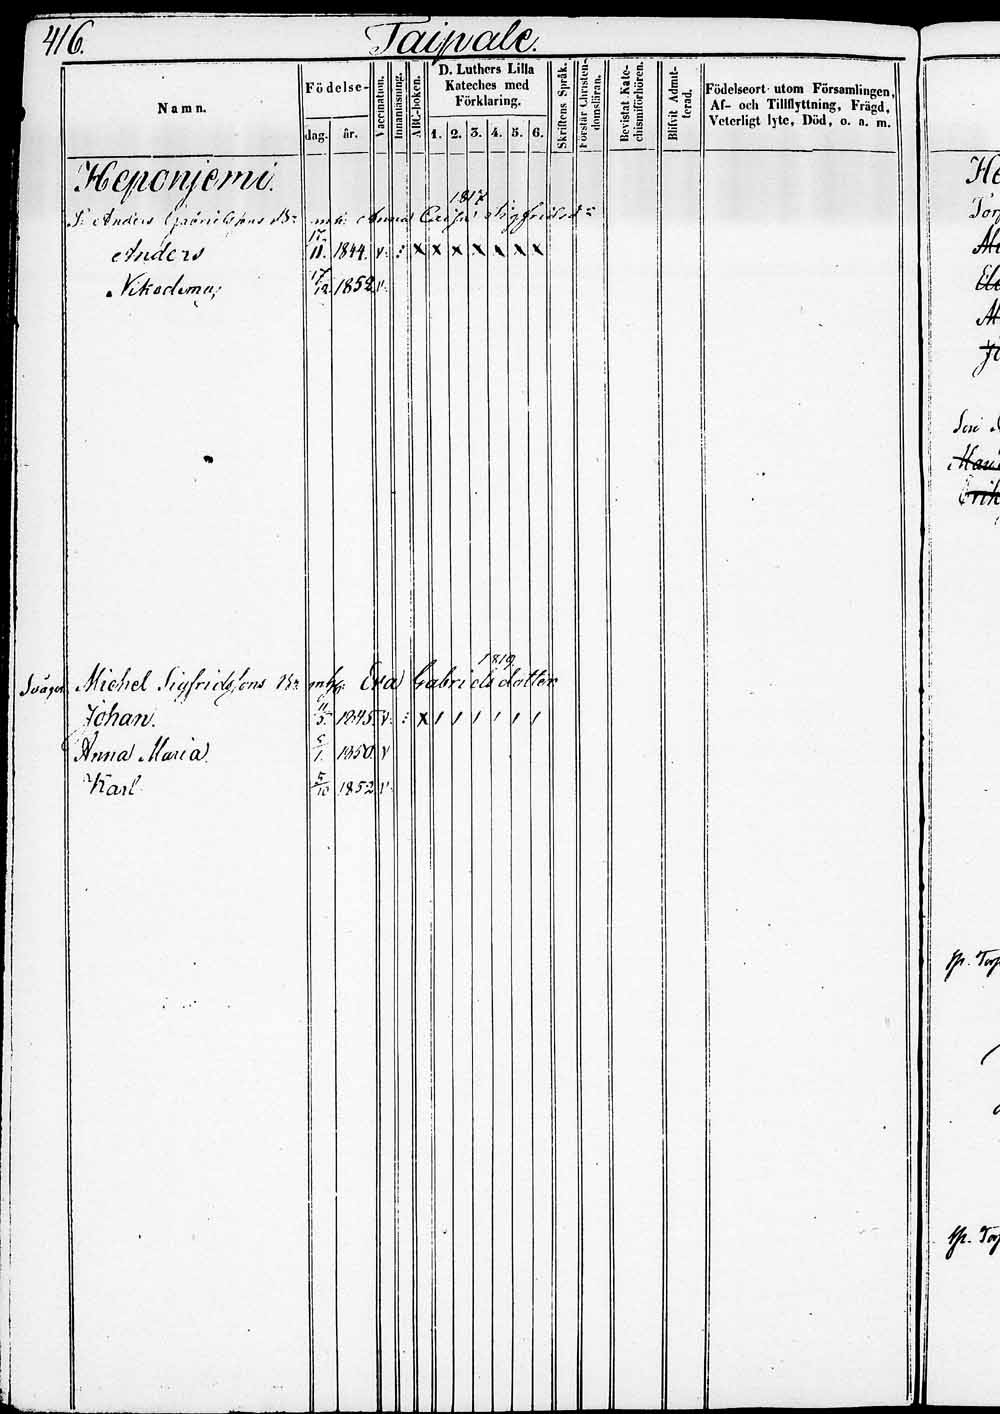 416.
Taipale.
Namn.
Födelse-
dag. år.
Vaccination.
Innanläsning.
ABC-boken.
D. Luthers Lilla
Kateches med
Förklaring.
1. 2. 3. 4. 5. 6.
Skriftens Språk.
Förstår Christen-
domsläran.
Bevistat Kate-
chismiförhören.
Blifvit Admit-
terad.
Födelseort utom Församlingen,
Af- och Tillflyttning, Frägd,
Veterligt lyte, Död, o. a. m.
Heponjemi.
1817
Anders Gabrielssons Anna Caisa Sigfridsd:r
Anders 17/11. 1844. v. x x x x x x x
Nikodemus 17/12 1852 v.
1819.
Svåger Michel Sigfridssons Eva Gabrielsdotter
Johan. 11/5. 1845 v. x / / / / / /
Anna Maria. 5/1. 1850. v
Karl 5/10 1852 v.